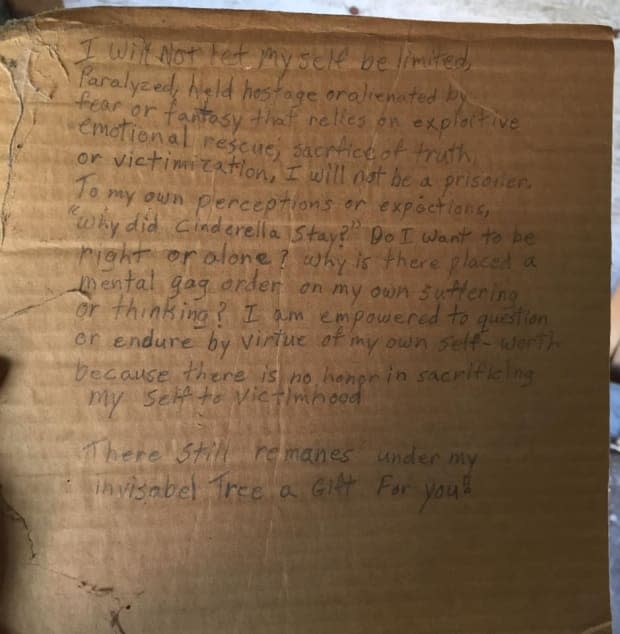 I will Not let my self be limited,
Paralyzed, held hostage or alienated by
fear or fantasy that relies on exploitive
emotional rescue, sacrfice of truth,
or victimization, I will not be a prisoner.
To my own perceptions or expections,
"why did Cinderella Stay?" Do I want to be
right or alone? why is there placed a
mental gag order on my own suffering
or thinking? I am empowered to question
or endure by virtue of my own self-worth
because there is no honor in sacrificing
my self to victimhood
There still remanes under my
invisabel Tree a Gift For you!